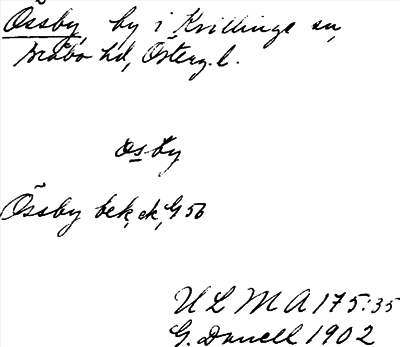 Össby, by i Kvillinge sn,
Bråbo hd, Österg. l.
ösby
Össby bek, ek, G 5b
U L M A 175:35
G. Danell 1902